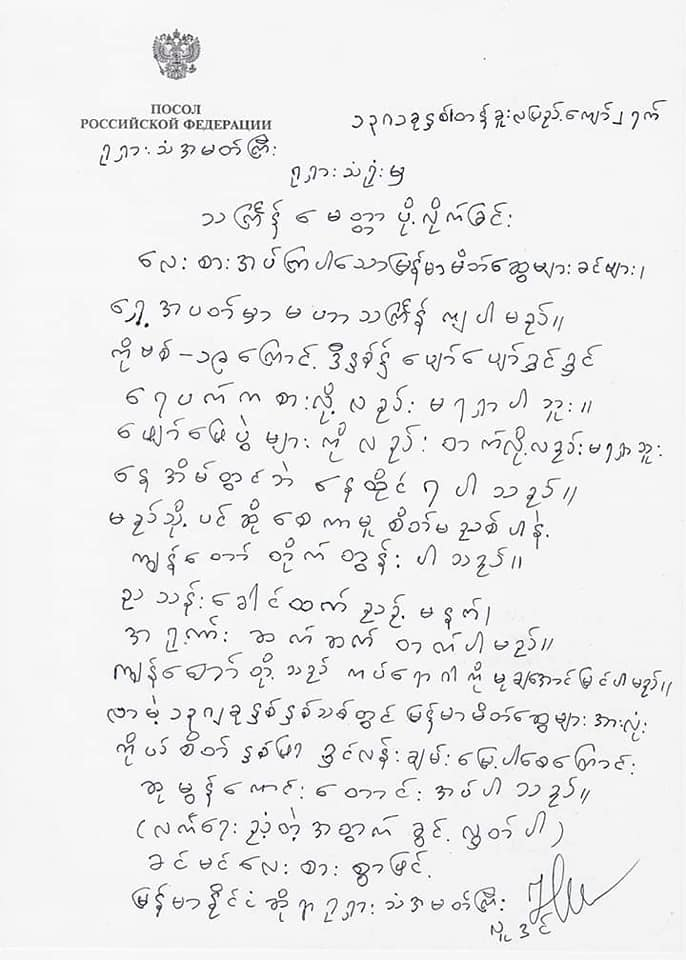 ПОСОЛ
РОССИЙСКОЙ ФЕДЕРАЦИИ
၁၃၈၁ခုနှစ်၊တန်ခူးလပြည့်ကျော်၂ရက်
ရုရှားသံအမတ်ကြီး
ရုရှားသံရုံးမှ
သင်္ကြန် မေတ္တာ ပို့လိုက်ခြင်း
လေးစားအပ်ကြပါသောမြန်မာမိတ်ဆွေများခင်ဗျား၊
ရှေ့အပတ်မှာ မဟာသင်္ကြန် ကျပါမည်။
ကိုဗစ်-၁၉ကြောင့် ဒီနှစ်၌ ပျော်ပျော်ရွှင်ရွှင်
ရေပက်ကစားလို့ လည်း မရရှာပါဘူး။
ပျော်ပြေပွဲများကိုလည်း တက်လို့လည်းမရရှာဘူး
နေအိမ်တွင်ဘဲ နေထိုင်ရပါသည်။
မည်သို့ပင်ဆိုစေကာမူ စိတ်မညစ်ဟန့်
ကျွန်တော် တိုက်တွန်းပါသည်။
ညသန်းခေါင်ထက် ညဉ့်မနက်၊
အရုဏ်းဆက်ဆက်တက်ပါမည်။
ကျွန်တော်တို့သည် ကပ်ရောဂါကိုမုချအောင်မြင်ပါမည်။
လာမဲ့၁၃၈၂ခုနှစ်နှစ်သစ်တွင် မြန်မာမိတ်ဆွေများအားလုံး
ကိုယ်စိတ်နှစ်ဖြာ ရွှင်လန်းချမ်းမြေ့ပါစေကြောင်း
ဆုမွန်ကောင်းတောင်းအပ်ပါသည်။
(လက်ရေးညံ့တဲ့အတွက် ခွင့်လွှတ်ပါ)
ခင်မင်လေးစားစွာဖြင့်
မြန်မာနိုင်ငံဆိုင်ရာ ရုရှားသံအမတ်ကြီး